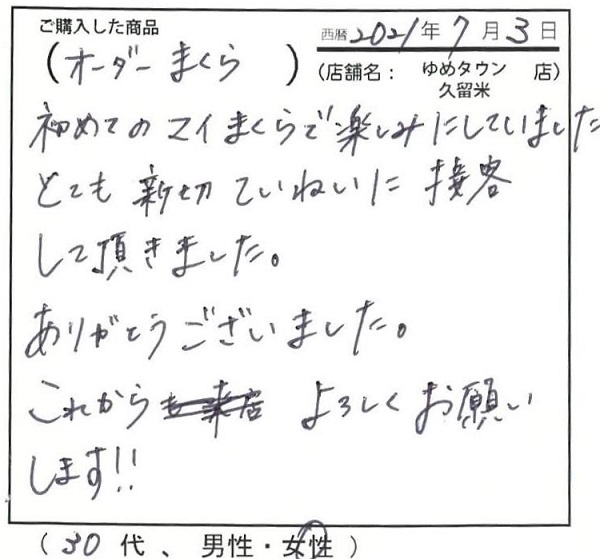 ご購入した商品
西暦2021年7月3日
(オーダーまくら)
(店舗名: ゆめタウン久留米 店)
初めてのマイまくらで楽しみにしていました
とても新切ていねいに接客
して頂きました。
ありがとうございました。
これから よろしくお願い
します!!
(30代、男性・女性)